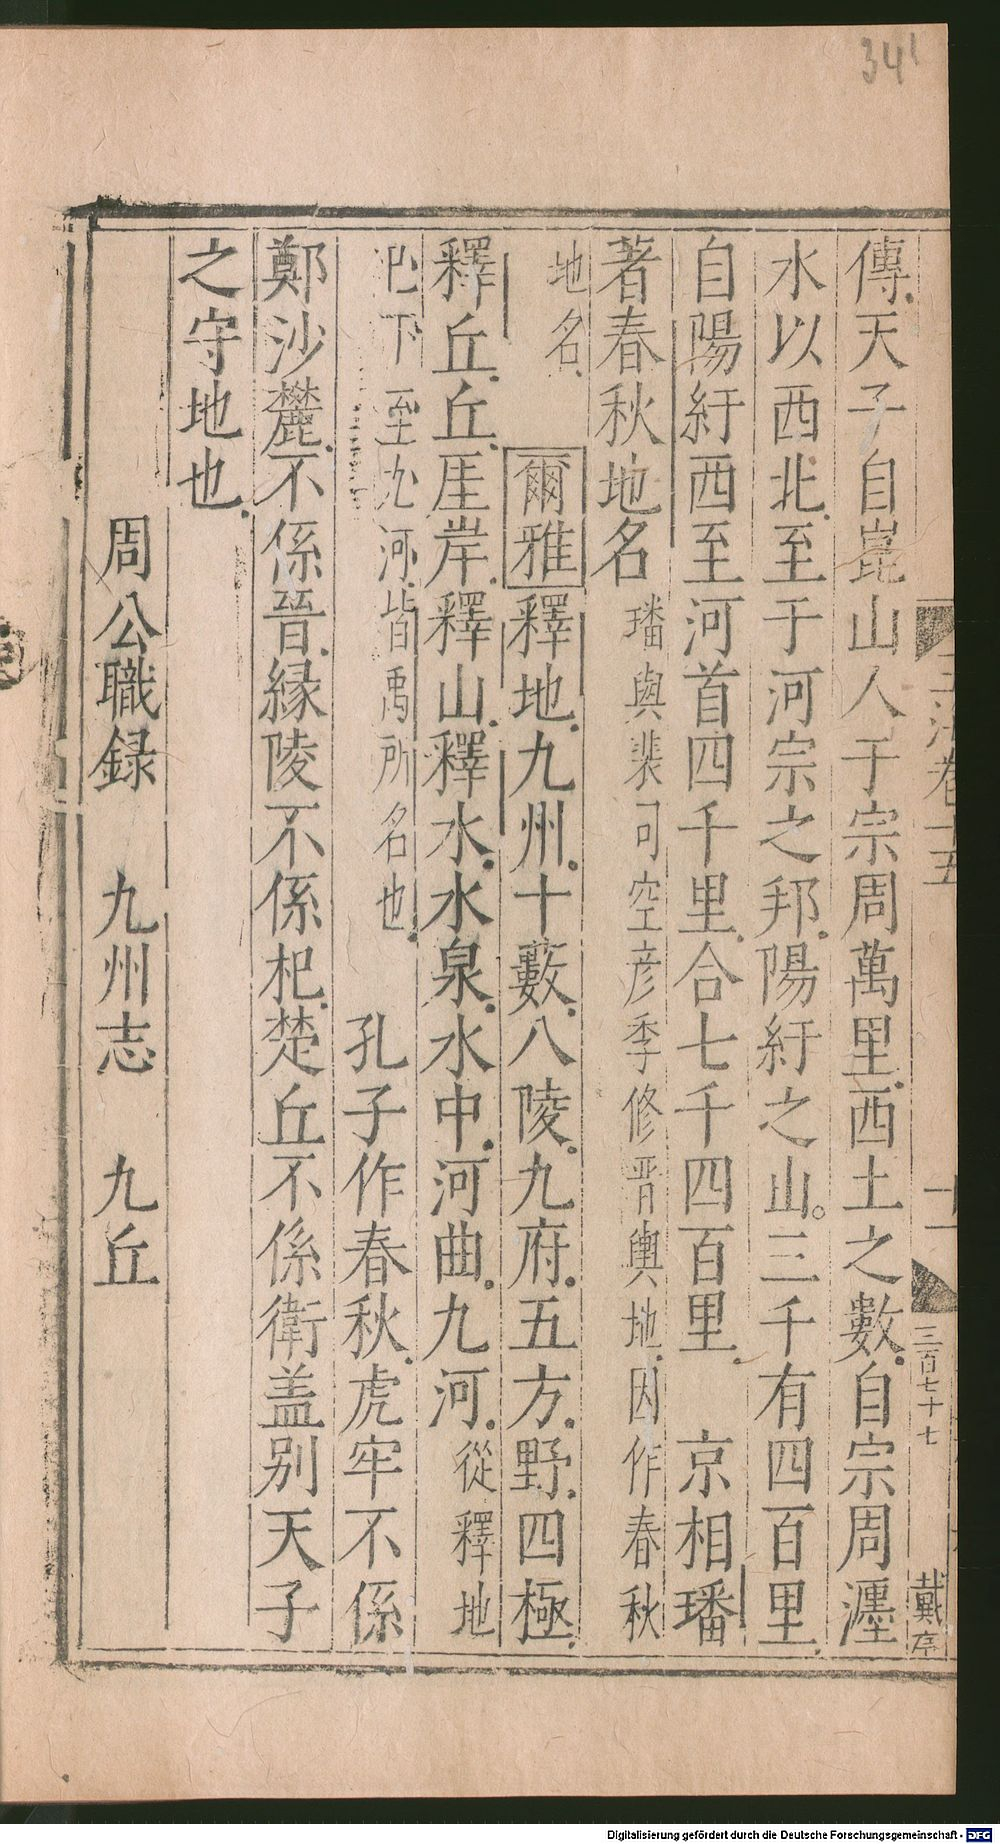 341
傳天子自崑山人于宗周萬里西土之數自宗周瀍
水以西北至于河宗之邦陽紆之山三千有四百里
自陽紆西至河首四千里合七千四百里　京相璠
著春秋地名璠與裴司空彦季修晋輿地因作春秋
地名　爾雅釋地九州十藪八陵九府五方野四極
釋丘丘厓岸釋山釋水水泉水中河曲九河從釋地
已下至九河皆禹所名也　孔子作春秋虎牢不係
鄭沙麓不係晉縁陵不係杞楚丘不係衛盖别天子
之守地也
周公職録　九州志　九丘
卷十五
十一
三百七十七
戴序
Digitalisierung gefördert durch die Deutsche Forschungsgemeinschaft - DFG